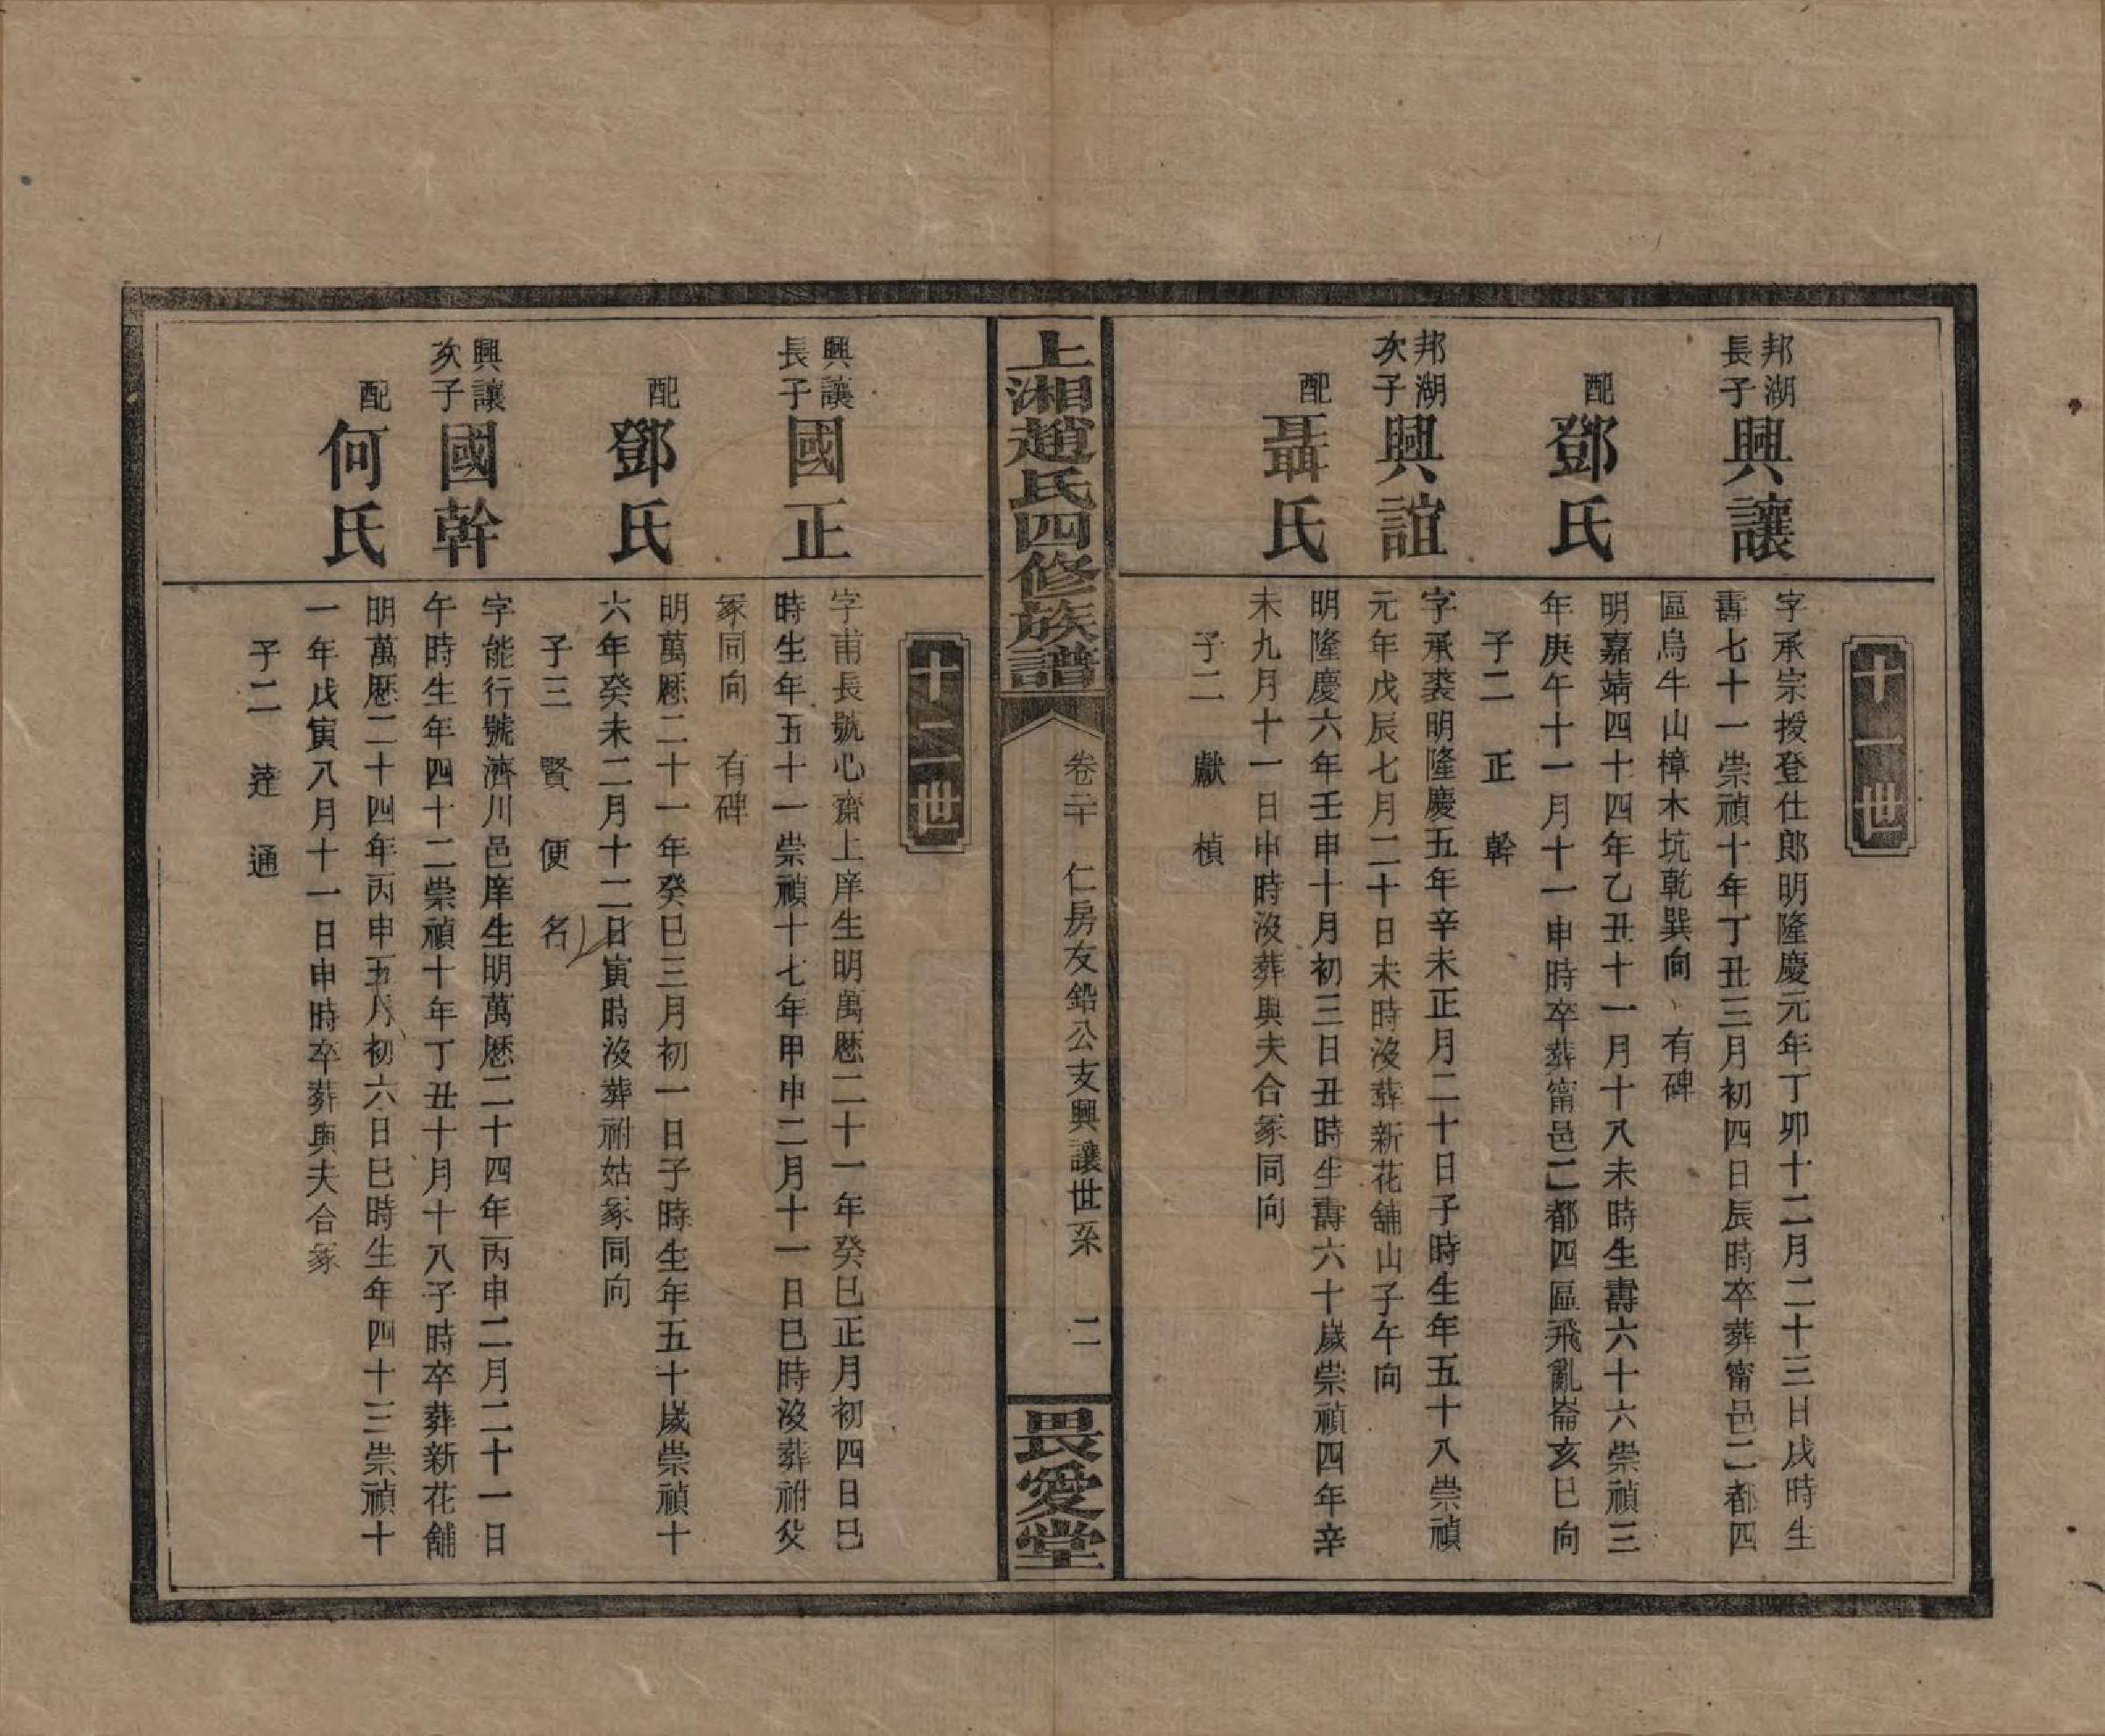 十一世
邦湖
長子
興讓
字承宗授登仕郎明隆慶元年丁卯十二月二十三日戌時生
壽七十一崇禎十年丁丑三月初四日辰時卒葬甯邑二都四
區烏牛山樟木坑乾巽向 有碑
配
鄧氏
明嘉靖四十四年乙丑十一月十八未時生壽六十六崇禎三
年庚午十一月十一申時卒葬甯邑二都四區飛亂崙亥巳向
子二 正 幹
邦湖
次子
興誼
字承裘明隆慶五年辛未正月二十日子時生年五十八崇禎
元年戊辰七月二十日未時沒葬新花舖山子午向
配
聶氏
明隆慶六年壬申十月初三日丑時生壽六十歲崇禎四年辛
未九月十一日申時沒葬與夫合冢同向
子二 獻 楨
上湘趙氏四修族譜
卷二十 仁房友鉛公支興讓世系 二
畏愛堂
十二世
興讓
長子
國正
字甫長號心齋上庠生明萬厯二十一年癸巳正月初四日巳
時生年五十一崇禎十七年甲申二月十一日巳時沒葬祔父
冢同向 有碑
配
鄧氏
明萬厯二十一年癸巳三月初一日子時生年五十歲崇禎十
六年癸未二月十二日寅時沒葬祔姑冢同向
子三 賢 便 名
興讓
次子
國幹
字能行號濟川邑庠生明萬厯二十四年丙申二月二十一日
午時生年四十二崇禎十年丁丑十月十八子時卒葬新花舖
配
何氏
明萬厯二十四年丙申五月初六日巳時生年四十三崇禎十
一年戊寅八月十一日申時卒葬與夫合冢
子二 達 通